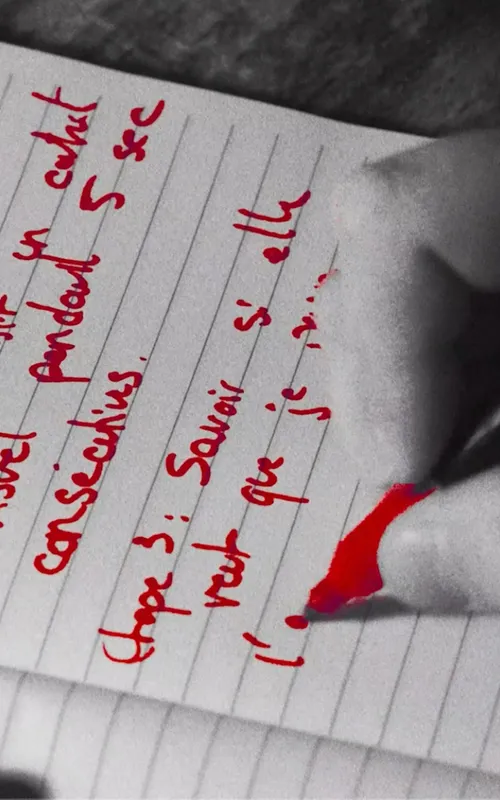 un contact
visuel pendant 5 sec
consécutives.
Étape 3 : Savoir si elle
veut que je